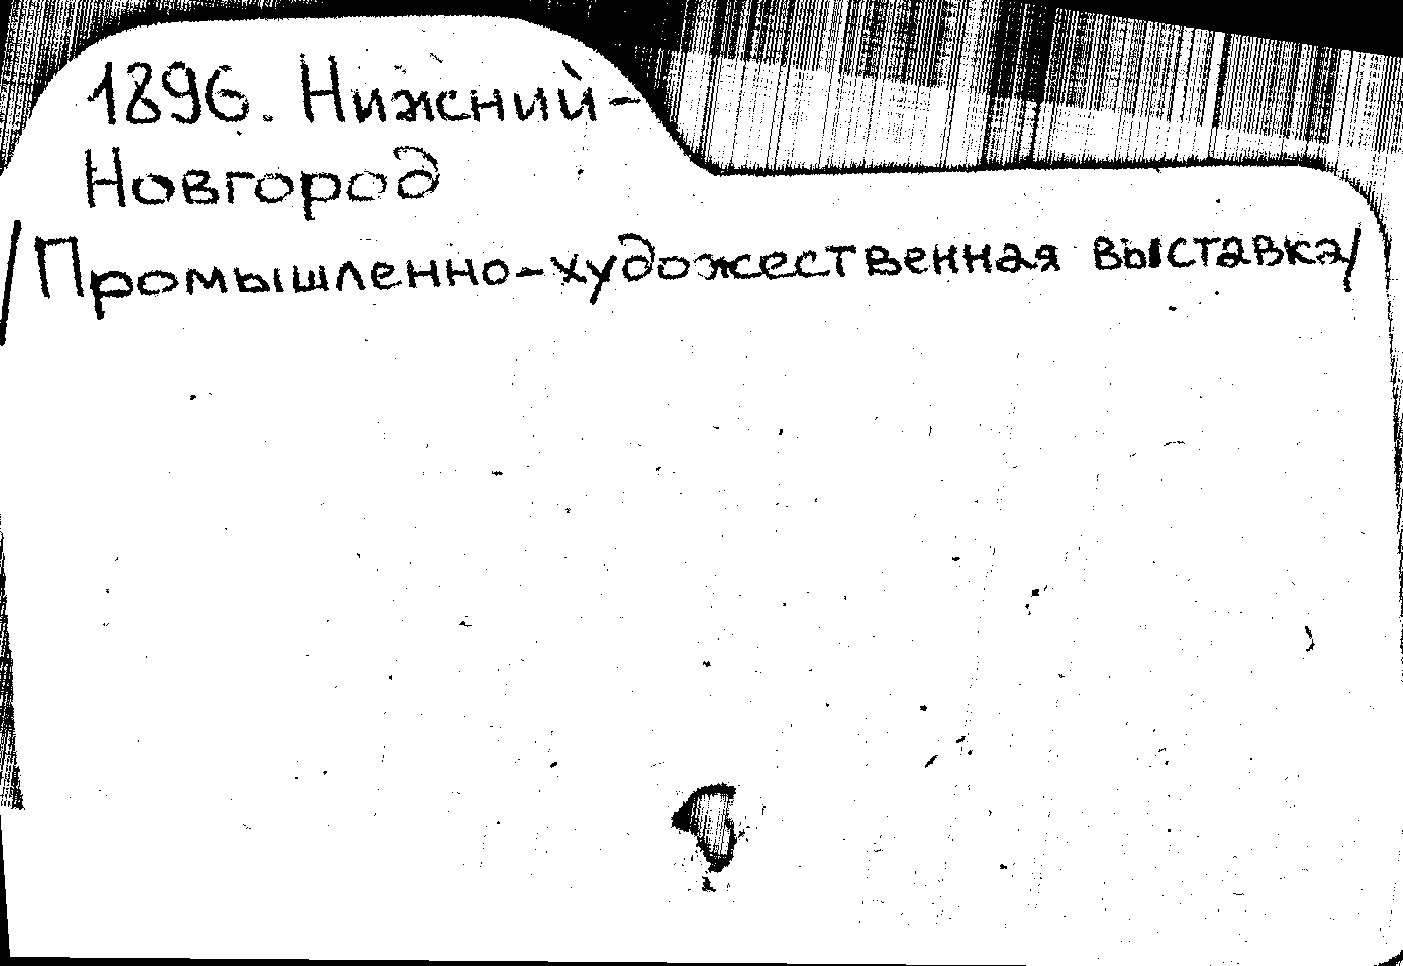 1896. Нижний-
Новгород
/Промышленно-художественная выставка/